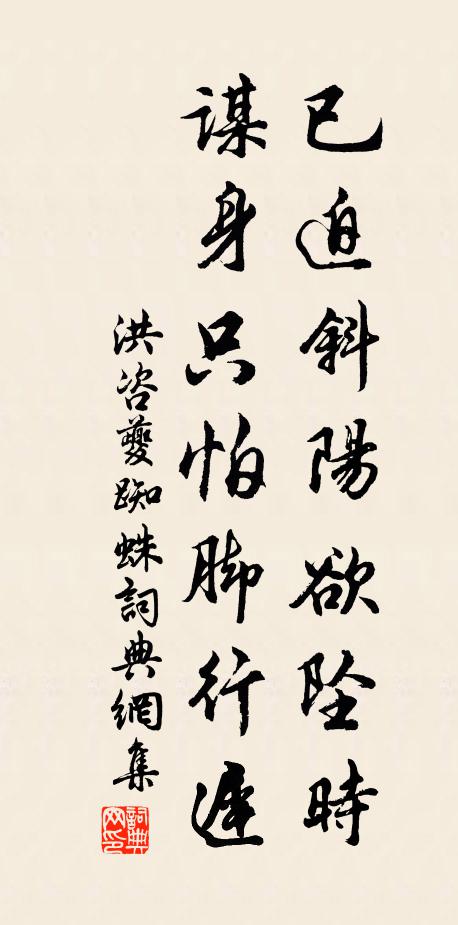 已迫斜陽欲墜時
謀身只怕脚行遲
洪咨夔踟蛛詞典網集
詞典网印